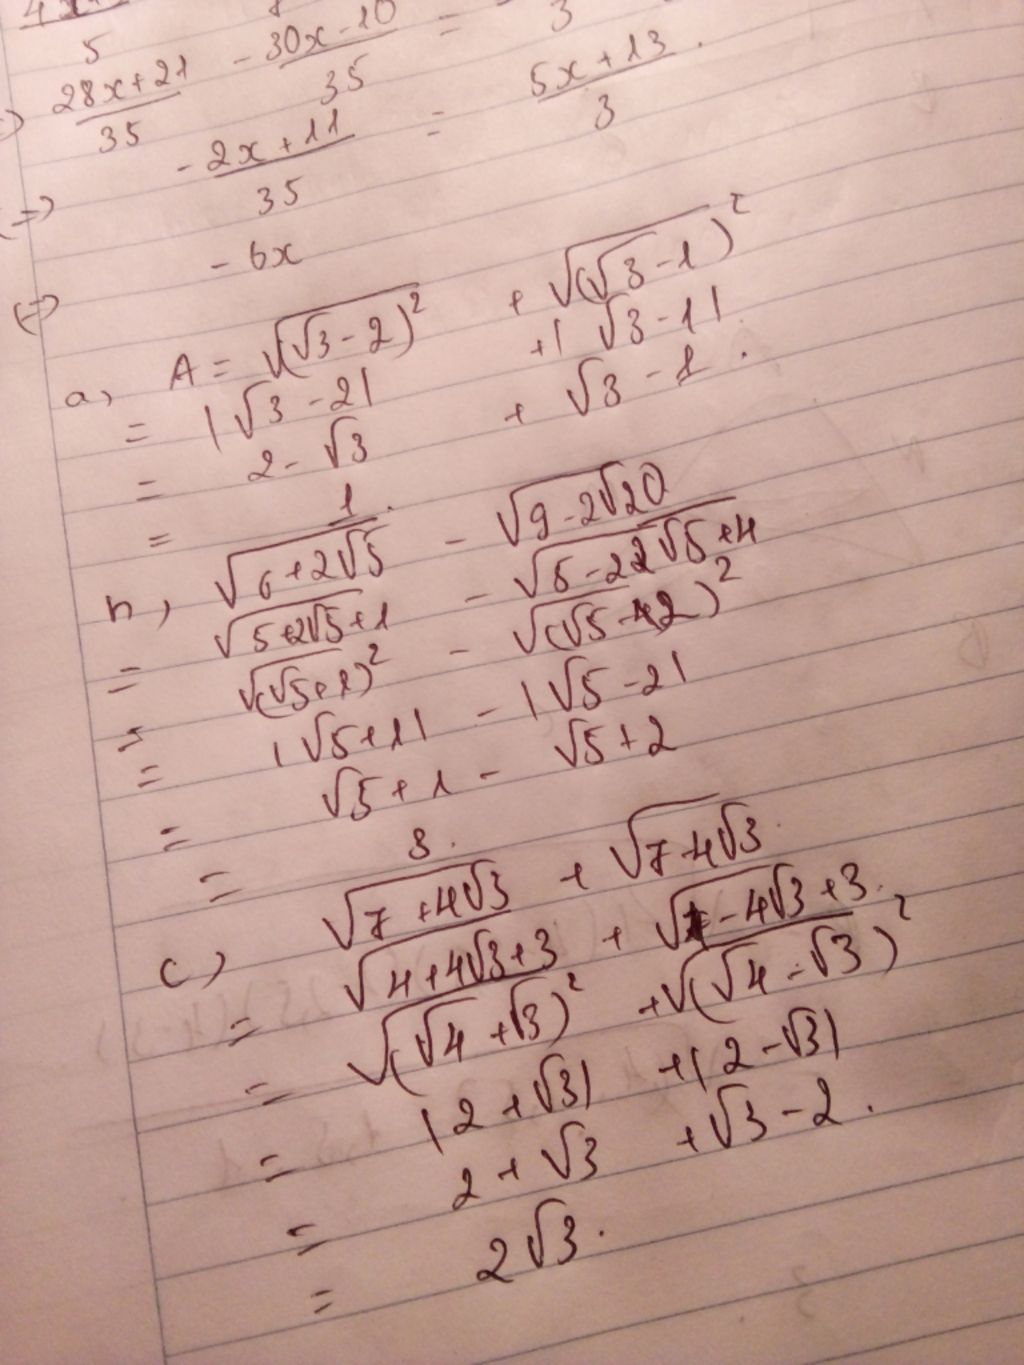 5
3
28x+21/35 - 30x-10/35 =
-2x+11/35 = 5x+13/3.
(=>
- 6x
(=)
a, A = √(√3-2)² + √(√3-1)²
= |√3-2| + |√3-1|.
= 2-√3 + √3-1.
= 1.
b, √6+2√5 - √9-2√20
= √5+2√5+1 - √5-22√5+4
= √(√5+1)² - √(√5-2)²
= |√5+1| - |√5-2|
= √5+1 - √5+2
= 3.
c) √7+4√3 + √7-4√3.
= √4+4√3+3 + √4-4√3+3.
= √(√4+√3)² + √(√4-√3)²
= |2+√3| + |2-√3|
= 2+√3 + √3-2.
= 2√3.